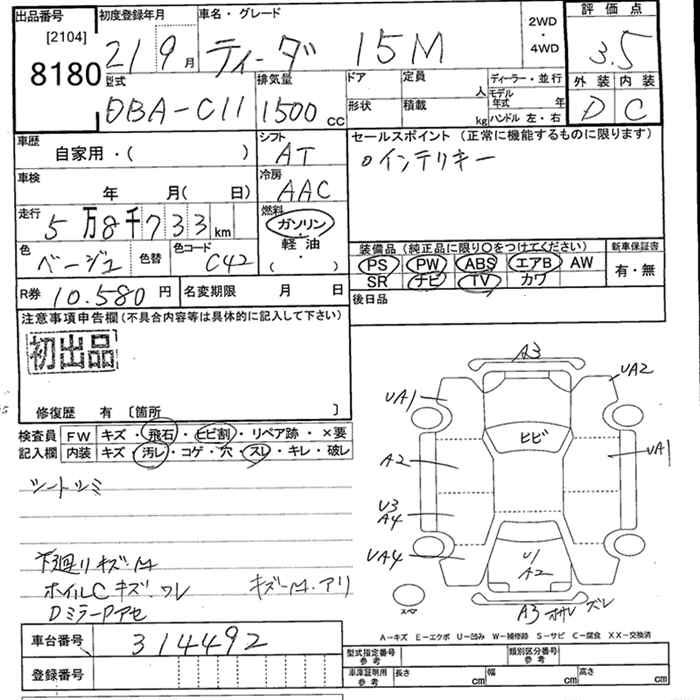 出品番号 初度登録年月 車名・グレード 2WD・4WD 評価点
[2104] 8180 21 9月 ティーダ 15M 3.5
型式 排気量 ドア 定員 人 ディーラー・並行 外装 内装
DBA-C11 1500cc 形状 積載 kg モデル年式 年 ハンドル 左・右 D C
車歴 シフト セールスポイント (正常に機能するものに限ります)
自家用・( ) AT ○インテリキー
車検 冷房
年 月( 日) AAC
走行 燃料
5万8千733km ガソリン
色 色替 色コード 軽油 装備品 (純正品に限り○をつけてください) 新車保証書
ベージュ C42 ( ・ ) PS PW ABS エアB AW 有・無
SR ナビ TV カワ
R券 10.580円 名変期限 月 日 後日品
注意事項申告欄(不具合内容等は具体的に記入して下さい)
初出品
修復歴 有 〔箇所 〕
検査員 FW キズ・飛石・ヒビ割・リペア跡・×要
記入欄 内装 キズ・汚レ・コゲ・穴・スレ・キレ・破レ
シートシミ
下廻りキズ・
ホイルCキズ・ワレ キズ・ アリ
DミラーPアセ
A3
UA1 UA2
ヒビ
A2 UA1
U3
A4
UA4 U1
A2
スペア A3 ズレ
A-キズ E-エクボ U-凹み W-補修跡 S-サビ C-腐食 XX-交換済
車台番号 314492 型式指定番号 参考 類別区分番号 参考
登録番号 車庫証明用 参考 長さ cm 幅 cm 高さ cm